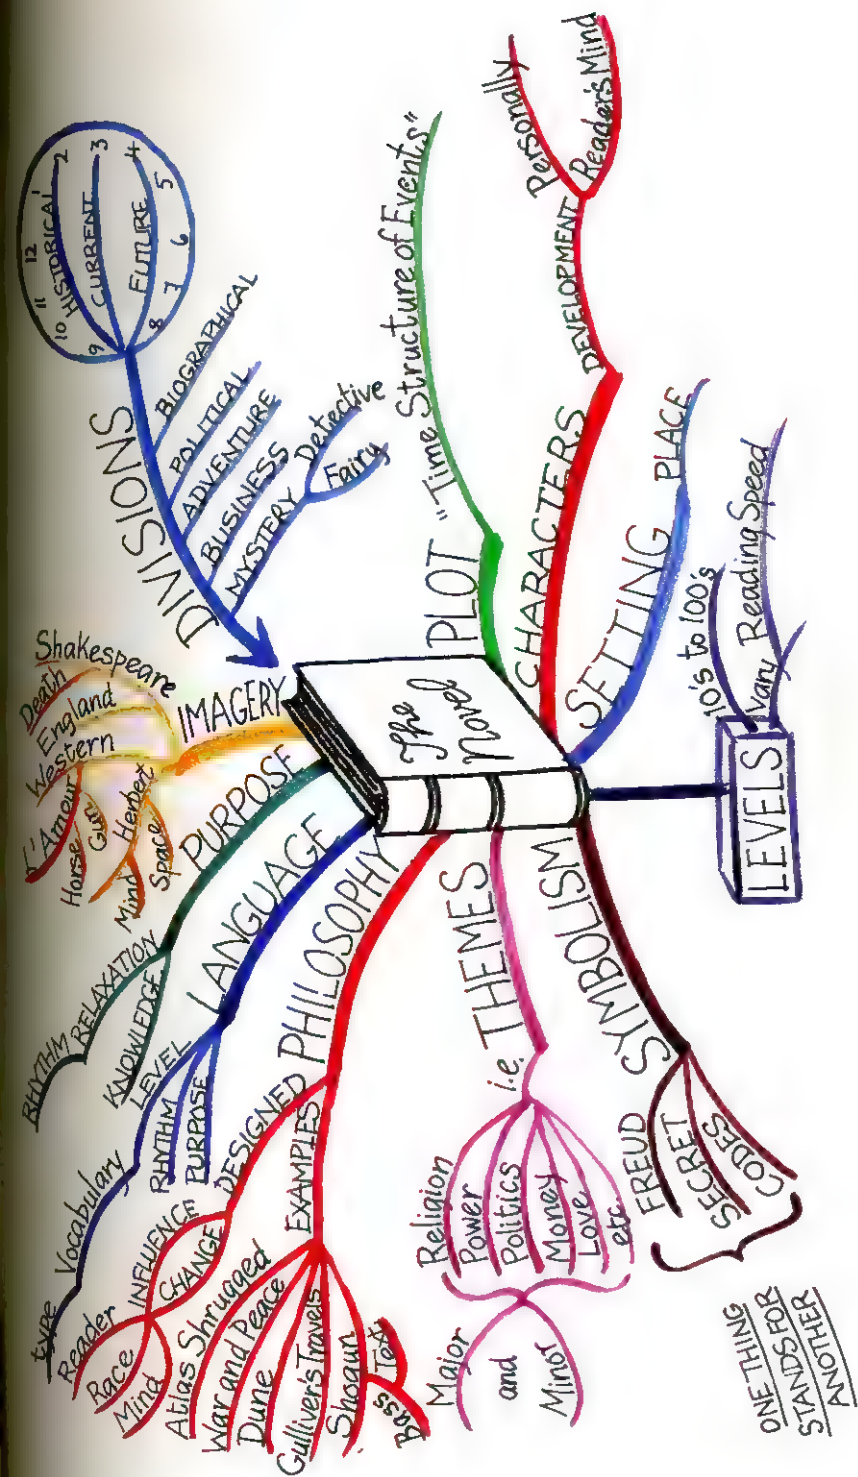 The
Novel
DIVISIONS
10 11 12 HISTORICAL 2
9 CURRENT 3
8 FUTURE 4
7 6 5
BIOGRAPHICAL
POLITICAL
ADVENTURE
BUSINESS
MYSTERY
Detective
Fairy
PLOT
"Time Structure of Events"
CHARACTERS
DEVELOPMENT
Personally
Reader's Mind
SETTING
PLACE
LEVELS
10's to 100's
Vary Reading Speed
SYMBOLISM
FREUD
SECRET
CODES
ONE THING
STANDS FOR
ANOTHER
THEMES
i.e.
Religion
Power
Politics
Money
Love
etc
Major
and
Minor
PHILOSOPHY
EXAMPLES
Atlas Shrugged
War and Peace
Dune
Gulliver's Travels
Shogun
Text
DESIGNED
INFLUENCE
CHANGE
Reader
Race
Mind
LANGUAGE
LEVEL
Vocabulary
type
RHYTHM
PURPOSE
PURPOSE
RELAXATION
RHYTHM
KNOWLEDGE
IMAGERY
Shakespeare
Death
England
Western
L'Amour
Horse
Gun
Herbert
Mind
Space